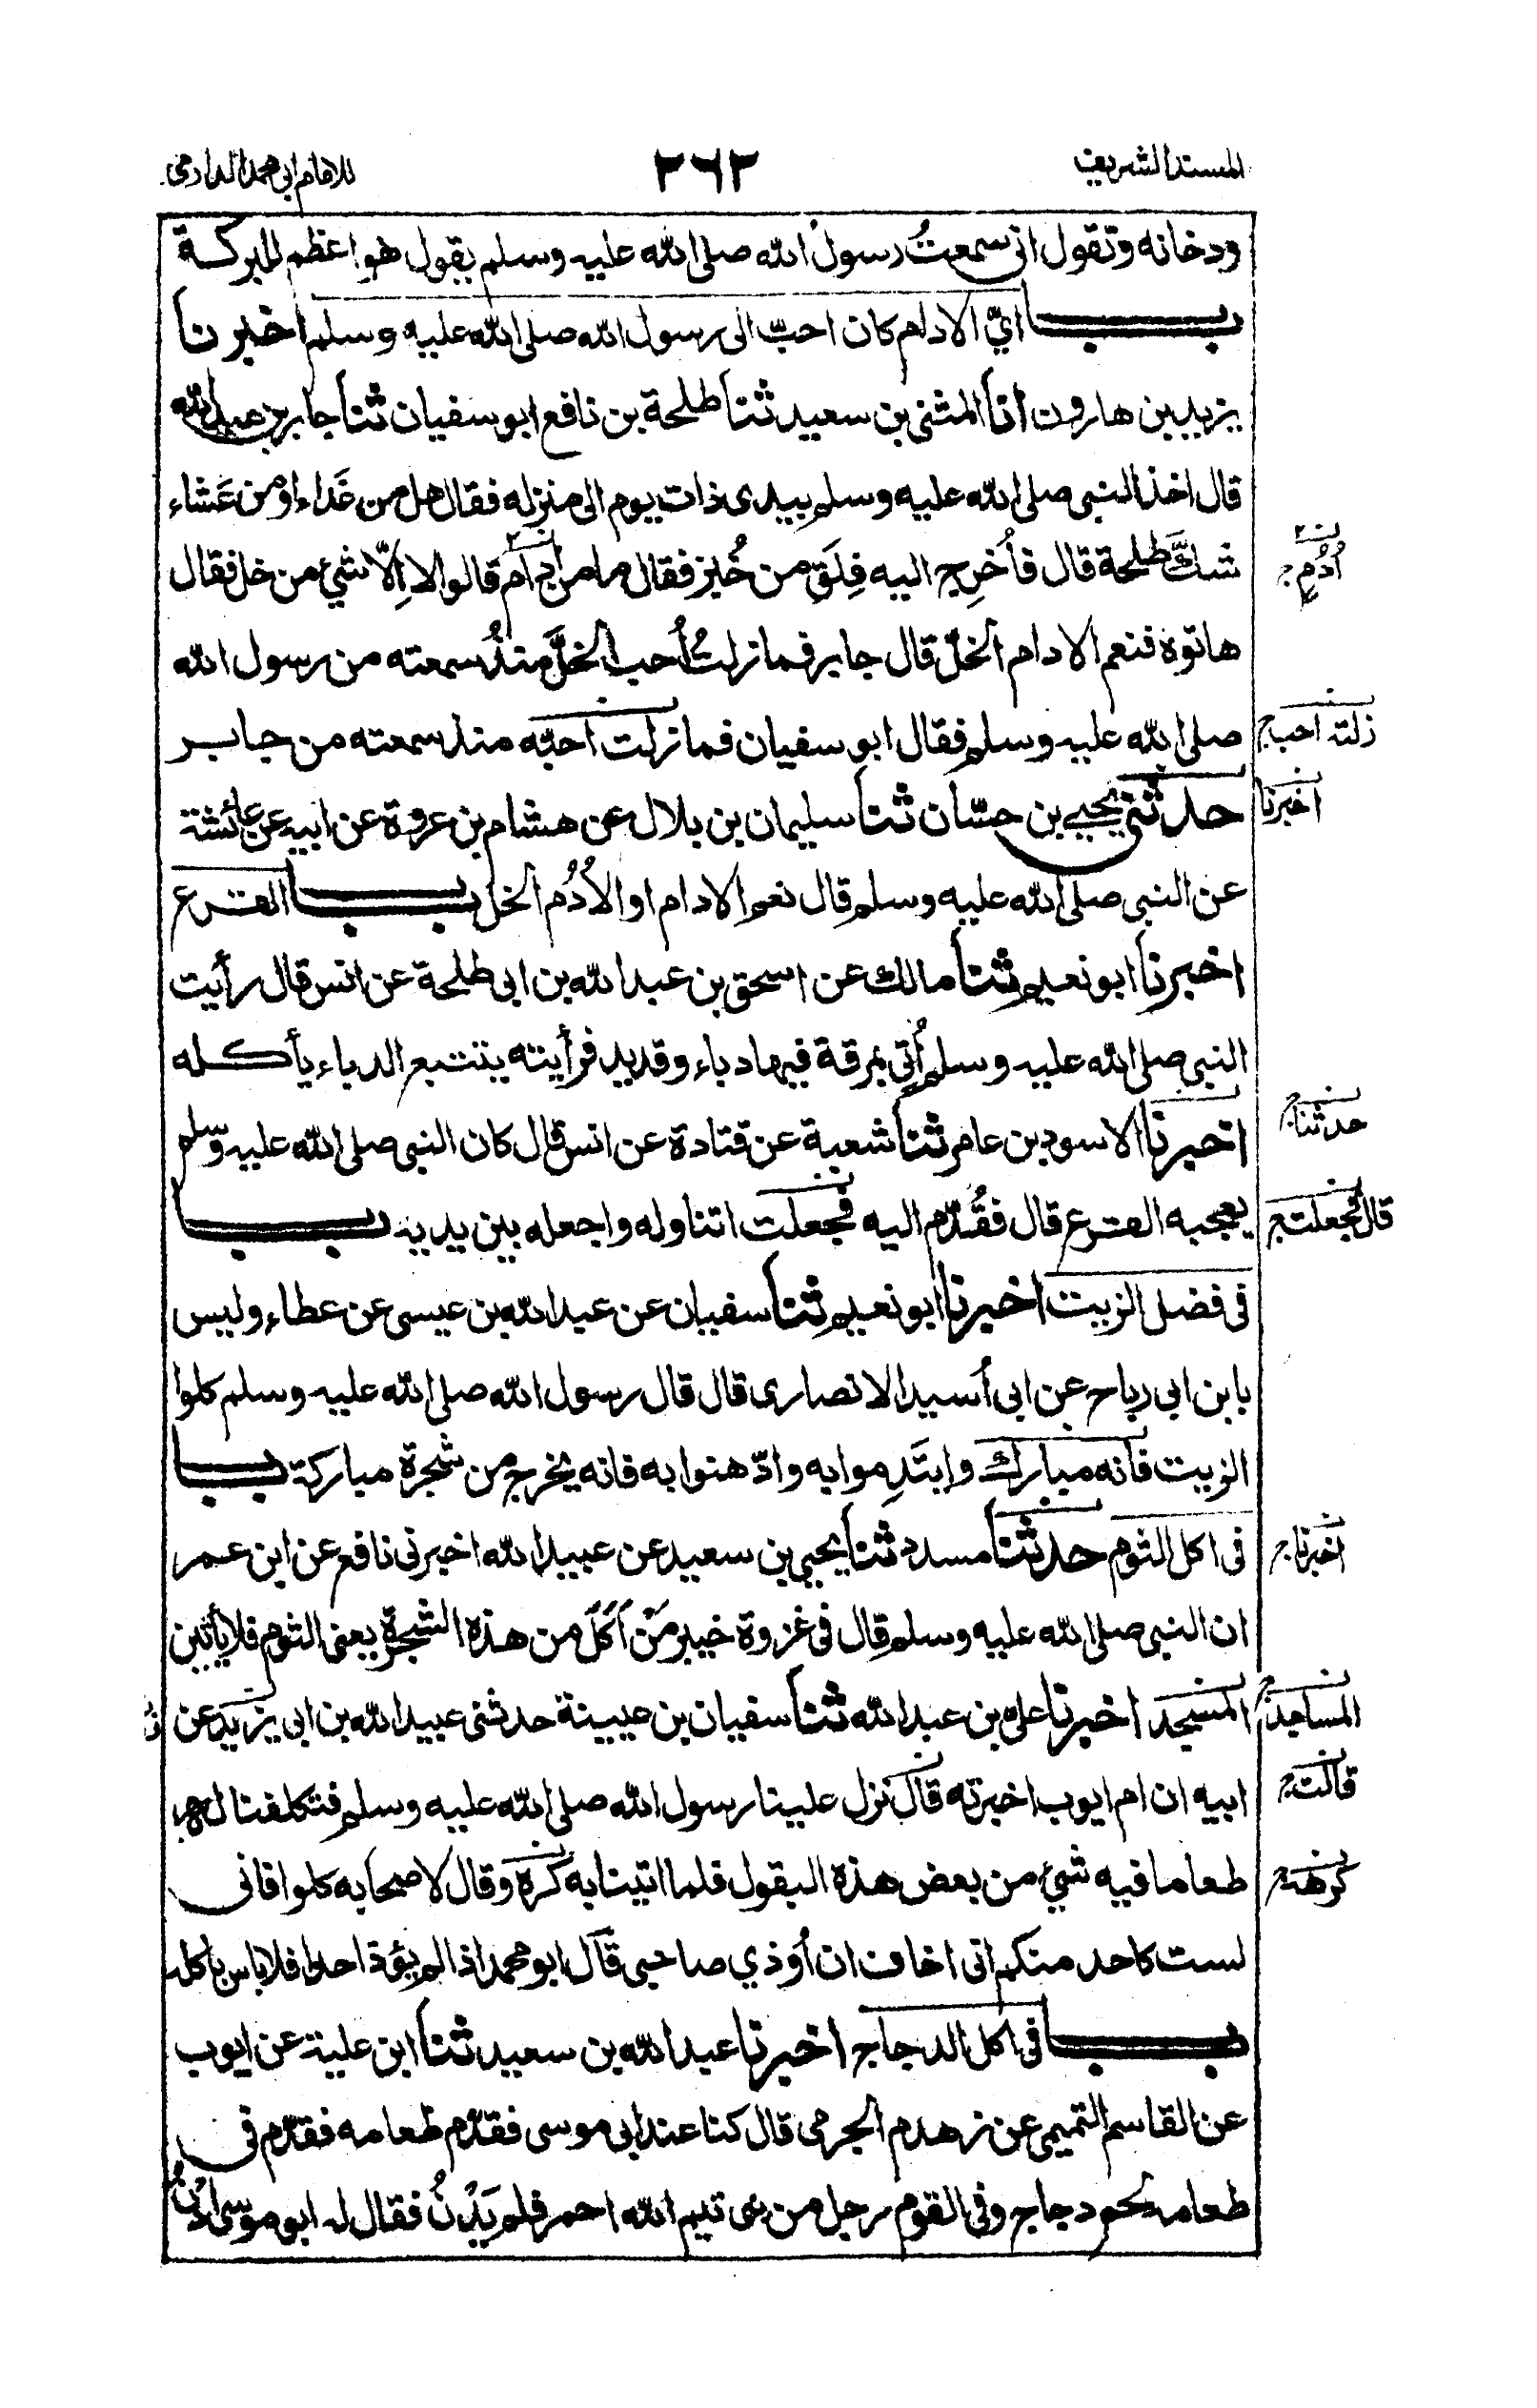 المسند الشريف
٢٦٣
للامام ابى محمد الدارمى
ودخانه وتقول انى سمعتُ رسول الله صلى الله عليه وسلم يقول هو اعظم للبركة
باب اىّ الادام كان احبّ الى رسول الله صلى الله عليه وسلم اخبرنا
يزيد بن هارون انا المثنى بن سعيد ثنا طلحة بن نافع ابو سفيان ثنا جابر بن عبد الله
قال اخذ النبى صلى الله عليه وسلم بيدى ذات يوم الى منزله فقال هل من غَداء او من عَشاء
شكَّ طلحة قال فأُخرِج اليه فِلَق من خُبز فقال ما من ادام قالوا لا اِلّا شيء من خل فقال
أُدُم
هاتوه فنعم الادام الخلّ قال جابر فما زلتُ أُحب الخلَّ منذُ سمعته من رسول الله
صلى الله عليه وسلم فقال ابو سفيان فما زلت احبّه منذ سمعته من جابر
زلته احب
حدثنى يحيى بن حسّان ثنا سليمان بن بلال عن هشام بن عروة عن ابيه عن عائشة
اخبرنا
عن النبى صلى الله عليه وسلم قال نعم الادام او الأُدُم الخل باب القرع
اخبرنا ابو نعيم ثنا مالك عن اسحق بن عبد الله بن ابى طلحة عن انس قال رأيت
النبى صلى الله عليه وسلم أُتى بمرقة فيها دباء وقديد فرأيته يتتبع الدباء يأكله
اخبرنا الاسود بن عامر ثنا شعبة عن قتادة عن انس قال كان النبى صلى الله عليه وسلم
حدثنا
يعجبه القرع قال فقُدّم اليه فجعلت اتناوله واجعله بين يديه باب
قال فجعلت
فى فضل الزيت اخبرنا ابو نعيم ثنا سفيان عن عبد الله بن عيسى عن عطاء وليس
بابن ابى رباح عن ابى أسيد الانصارى قال قال رسول الله صلى الله عليه وسلم كلوا
الزيت فانه مبارك وايتَدِموا به وادّهنوا به فانه يخرج من شجرة مباركة باب
فى اكل الثوم حدثنا مسدد ثنا يحيى بن سعيد عن عبيد الله اخبرنى نافع عن ابن عمر
اخبرنا
ان النبى صلى الله عليه وسلم قال فى غزوة خيبر مَنْ اَكَلَ من هذه الشجرة يعنى الثوم فلا يأتين
المسجد اخبرنا على بن عبد الله ثنا سفيان بن عيينة حدثنى عبيد الله بن ابى يزيد عن
المساجد
ابيه ان ام ايوب اخبرته قال نزل علينا رسول الله صلى الله عليه وسلم فتكلفنا له
قالت
طعاما فيه شيء من بعض هذه البقول فلما اتينا به كره وقال لاصحابه كلوا فانى
كرهه
لست كاحد منكم انى اخاف ان أوذي صاحبى قال ابو محمد اذا لم يؤذ احدا فلا باس باكله
باب فى اكل الدجاج اخبرنا عبد الله بن سعيد ثنا ابن علية عن ايوب
عن القاسم التميمى عن زهدم الجرمى قال كنا عند ابى موسى فقدّم طعامه فقدّم فى
طعامه لحم دجاج وفى القوم رجل من بنى تيم الله احمر فلم يَدْنُ فقال له ابو موسى ادْنُ